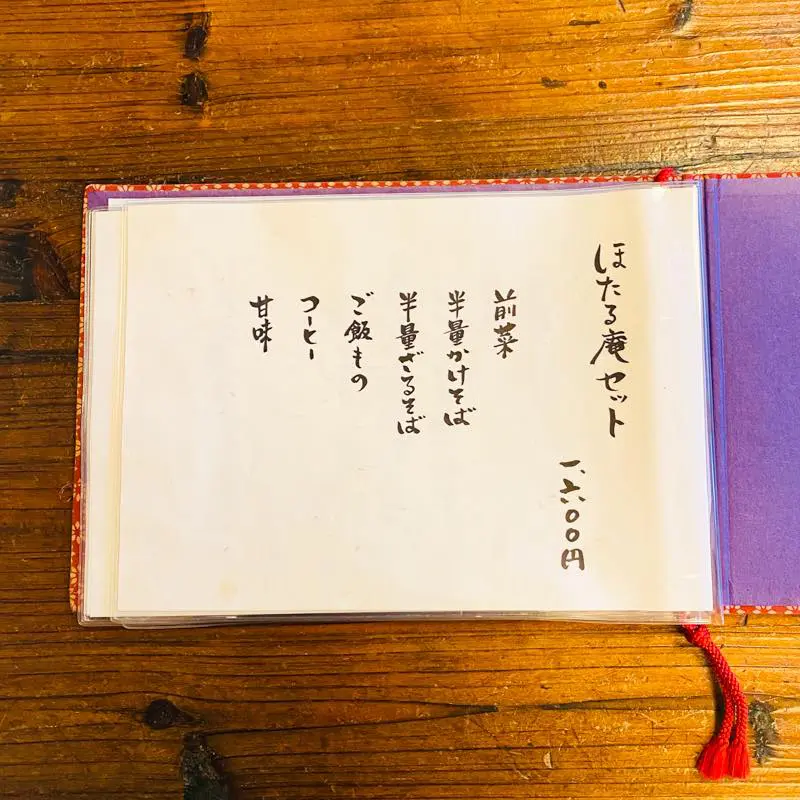 ほたる庵セット
一、六〇〇円
前菜
半量かけそば
半量ざるそば
ご飯もの
コーヒー
甘味